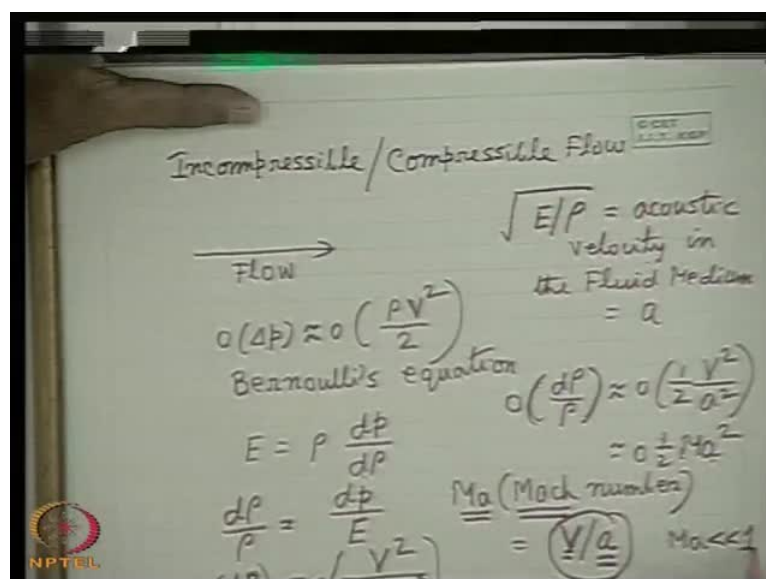 Incompressible/Compressible Flow
C CET
I.I.T. KGP
Flow
O(Δp) ≈ O(ρV²/2)
Bernoulli's equation
E = ρ dp/dρ
dρ/ρ = dp/E
√E/ρ = acoustic
velocity in
the Fluid Medium
= a
O(dρ/ρ) ≈ O(1/2 V²/a²)
≈ O 1/2 Ma²
Ma (Mach number)
= V/a Ma<<1
NPTEL